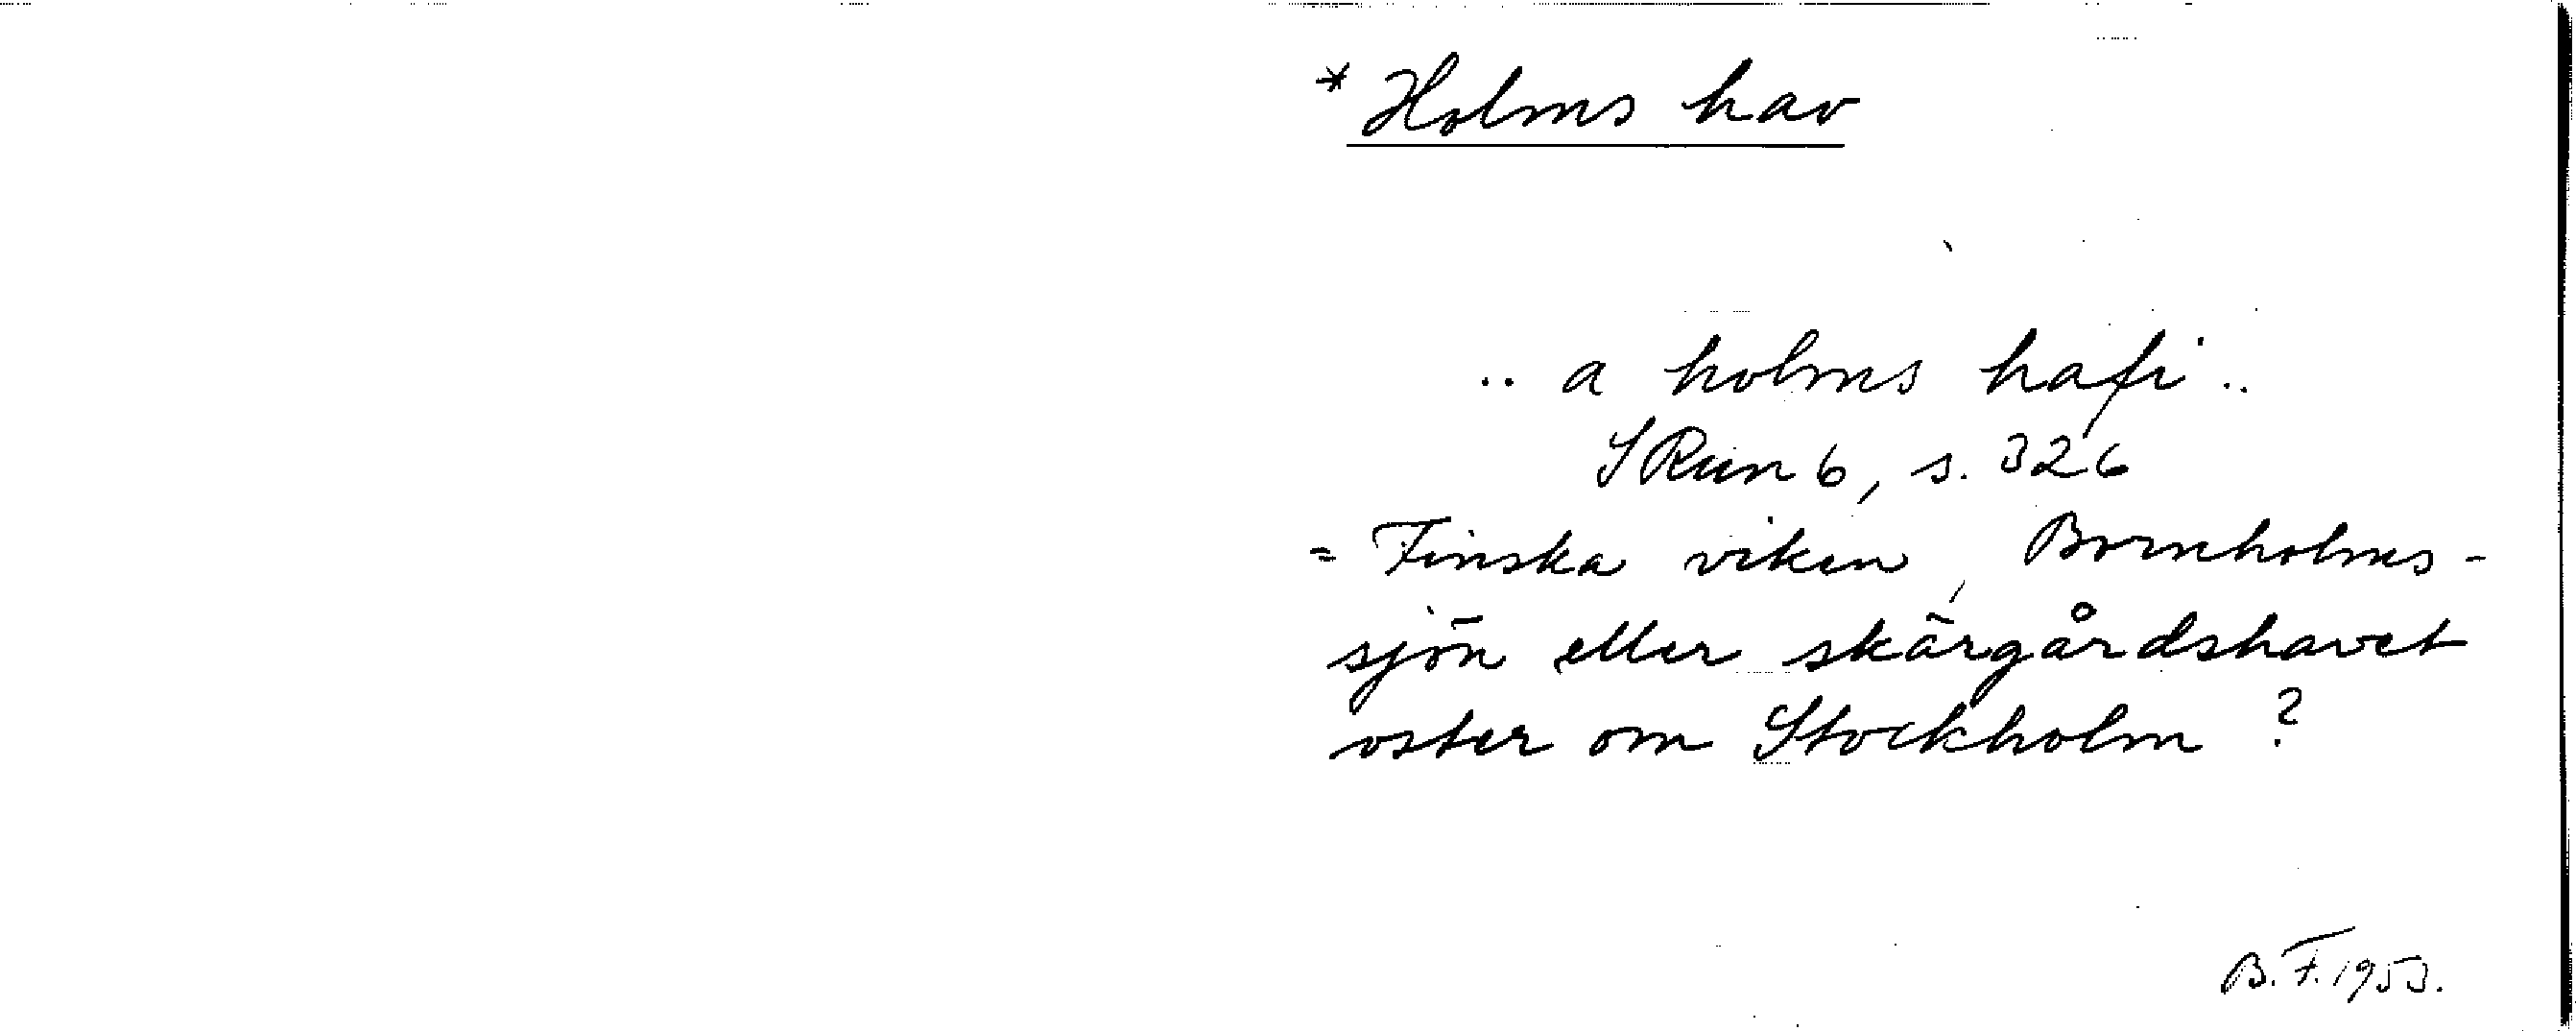 * Holms hav
.. a holms hafi ..
SRun 6, s. 326
= Finska viken, Bornholms-
sjön eller skärgårdshavet
öster om Stockholm ?
B.F. 1953.